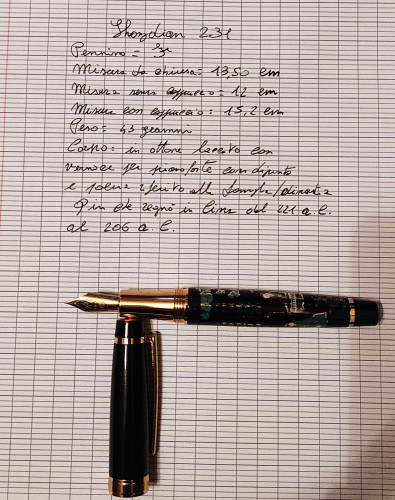 Shozdian 231
Pennino = F
Misura da chiusa = 13,50 cm
Misura senza cappuccio = 12 cm
Misura con cappuccio = 15,2 cm
Peso = 43 grammi
Corpo: in ottone laccato con
vernice per pianoforte con dipinto
e poesia riferito alla famiglia/dinastia
Qin che regnò in Cina dal 221 a.C.
al 206 a.C.